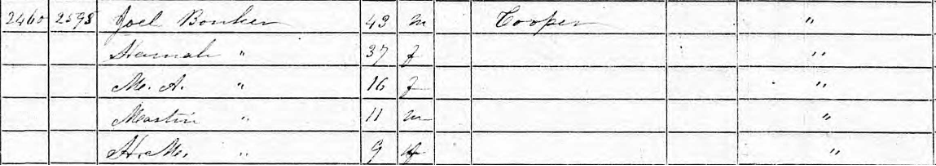 2460 2598 Joel Bonker 43 m Cooper "
Hannah " 37 f "
M. A. " 16 f "
Martin " 11 m "
H. M. " 9 f "